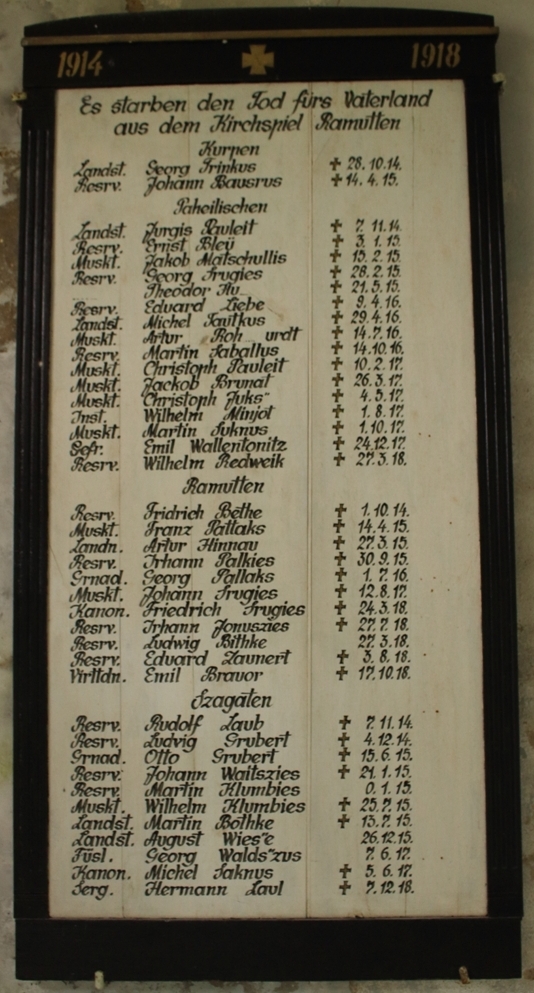 1914 1918
Es starben den Tod fürs Vaterland
aus dem Kirchspiel Ramutten
Kurpen
Landst. Georg Trinkus ✝ 28.10.14.
Resrv. Johann Bausrus ✝ 14.4.15.
Paheilischen
Landst. Jurgis Pauleit ✝ 7.11.14.
Resrv. Ernst Bleÿ ✝ 3.1.15.
Muskt. Jakob Matschullis ✝ 15.2.15.
Resrv. Georg Trugies ✝ 28.2.15.
Theodor ✝ 21.5.15.
Resrv. Eduard Liebe ✝ 9.4.16.
Landst. Michel Tautkus ✝ 29.4.16.
Muskt. Artur ✝ 14.7.16.
Resrv. Martin Taballus ✝ 14.10.16.
Muskt. Christoph Pauleit ✝ 10.2.17.
Muskt. Jackob Brunat ✝ 26.3.17.
Muskt. Christoph ✝ 4.5.17.
Inst. Wilhelm Minjot ✝ 1.8.17.
Muskt. Martin Suknus ✝ 1.10.17.
Gefr. Emil Wallentonitz ✝ 24.12.17.
Resrv. Wilhelm Redweik ✝ 27.3.18.
Ramutten
Resrv. Fridrich Bethe ✝ 1.10.14.
Muskt. Franz Pattaks ✝ 14.4.15.
Landn. Artur Hinnau ✝ 27.3.15.
Resrv. Irhann Palkies ✝ 30.9.15.
Grnad. Georg Pallaks ✝ 1.7.16.
Muskt. Johann Trugies ✝ 12.8.17.
Kanon. Friedrich Trugies ✝ 24.3.18.
Resrv. Irhann Jonuszies ✝ 27.7.18.
Resrv. Ludwig Bithke 27.3.18.
Resrv. Eduard Zaunert ✝ 3.8.18.
Virttdn. Emil Bravor ✝ 17.10.18.
Szagaten
Resrv. Rudolf Laub ✝ 7.11.14.
Resrv. Ludvig Grubert ✝ 4.12.14.
Grnad. Otto Grubert ✝ 15.6.15.
Resrv. Johann Waitszies ✝ 21.1.15.
Resrv. Martin Klumbies 0.1.15.
Muskt. Wilhelm Klumbies ✝ 25.7.15.
Landst. Martin Bothke ✝ 13.7.15.
Landst. August Wies"e 26.12.15.
Füsl. Georg Walds"zus 7.6.17.
Kanon. Michel Saknus ✝ 5.6.17.
Serg. Hermann Laul ✝ 7.12.18.